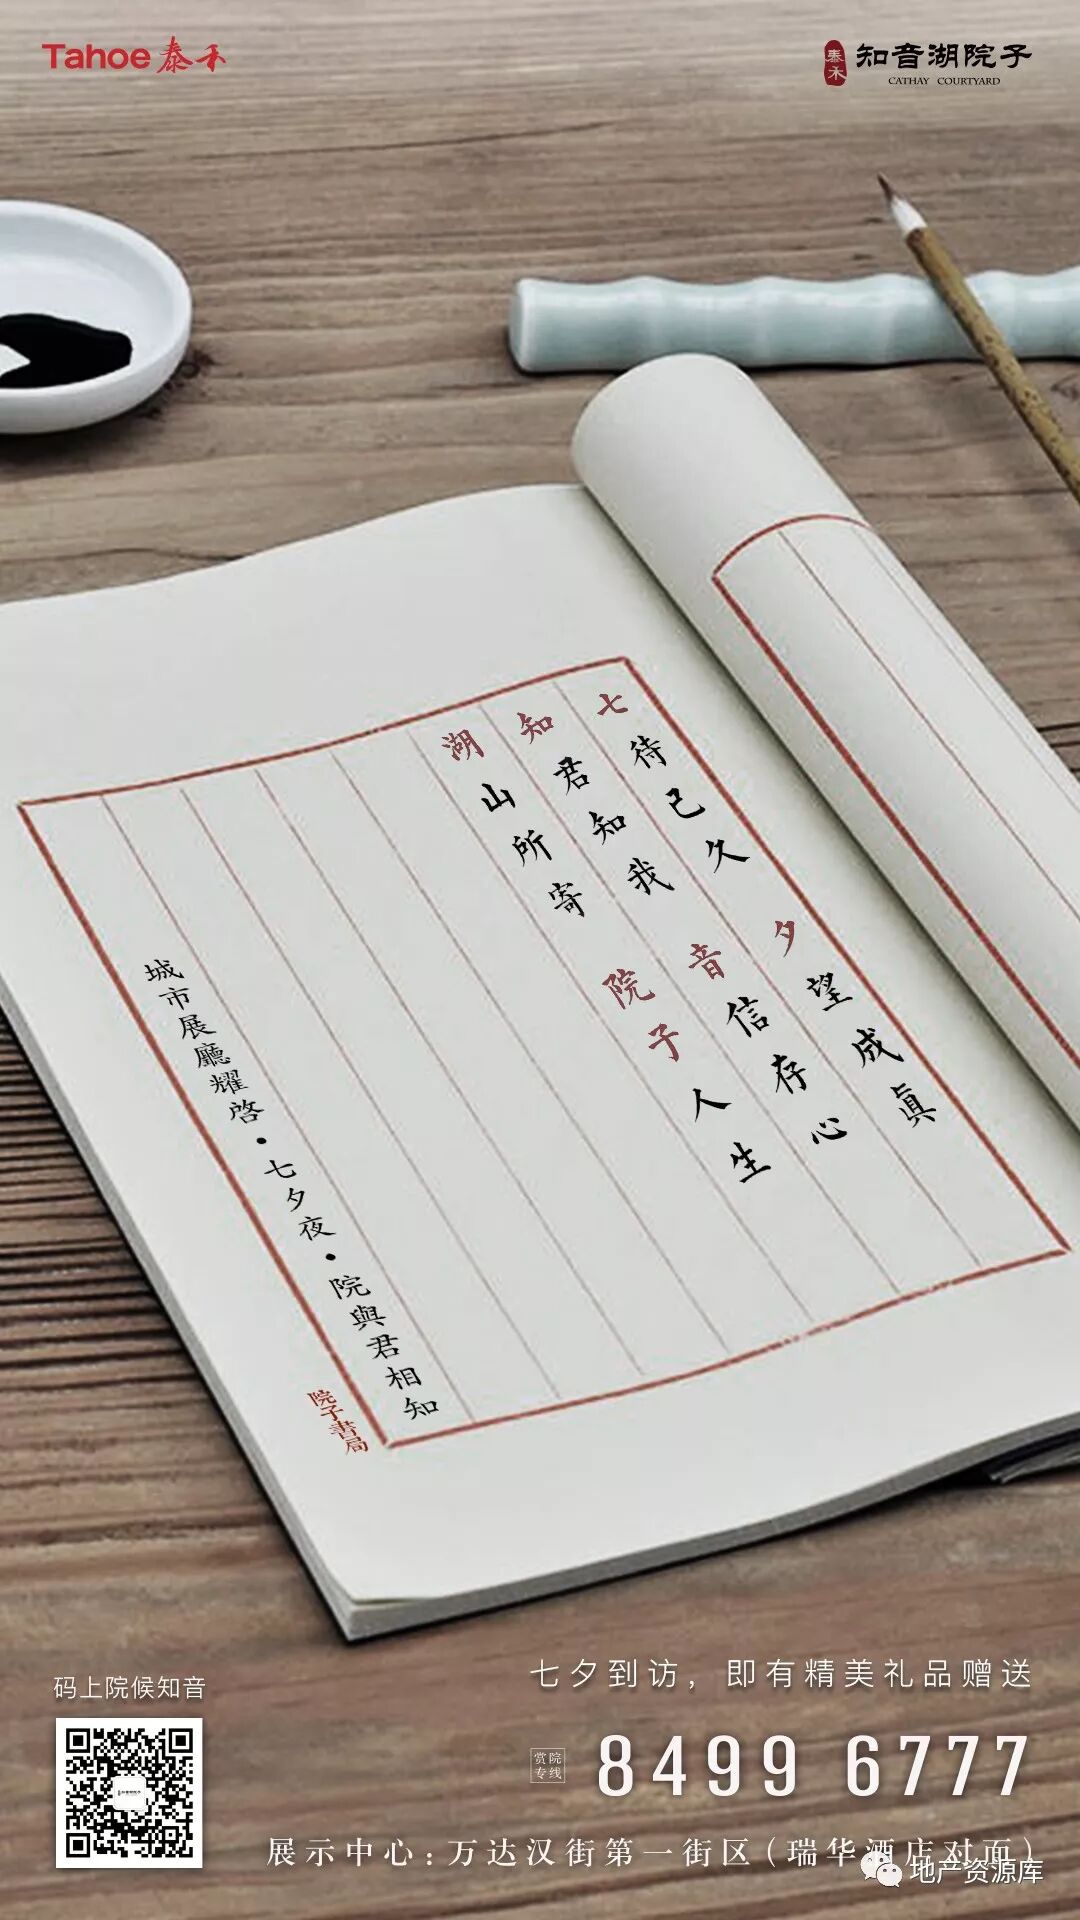 Tahoe泰禾
泰禾
知音湖院子
CATHAY COURTYARD
七待已久
夕望成真
知君知我
音信存心
湖山所寄
院子人生
城市展廳耀啓·七夕夜·院與君相知
院子書局
码上院候知音
七夕到访，即有精美礼品赠送
赏院
专线
8499 6777
展示中心:万达汉街第一街区（瑞华酒店对面）
地产资源库